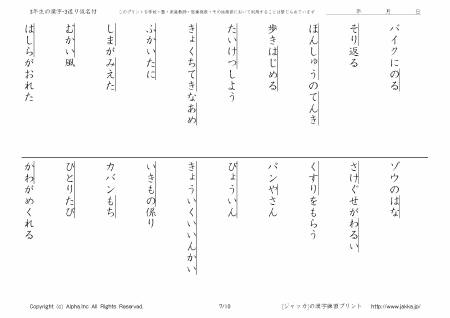 3年生の漢字-3送り仮名付
このプリントを学校・塾・家庭教師・医療施設・その他施設において利用することは禁じられています
年 月 日
バイクにのる
そり返る
ほんしゅうのてんき
歩きはじめる
たいけつしよう
きょくちてきなあめ
ふかいたに
しまがみえた
むかい風
はしらがおれた
ゾウのはな
さけぐせがわるい
くすりをもらう
パンやさん
びょういん
きょういくいいんかい
いきもの係り
カバンもち
ひとりたび
かわがめくれる
Copyright (c) Alpha.Inc All Rights Reserved.
7/10
[ジャッカ]の漢字練習プリント http://www.jakka.jp/